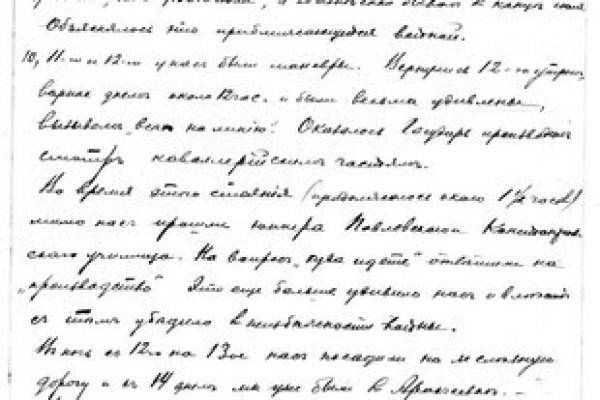 Объяснялось это приближающейся войной.
10, 11-го и 12-го у нас были маневры. Вернулись 12-го утром,
вернее днем около 12 час. и были весьма удивлены,
вызовом "всех на линию". Оказалось Государь производил
смотр кавалерийским частям.
Во время этого стояния (продолжалось около 1½ часов)
мимо нас прошли юнкера Павловского
училища. На вопрос "куда идете" отвечали на
"производство" Это еще больше удивило нас и
с тем убедило в неизбежности войны.
В ночь с 12-го на 13-ое нас посадили на железную
дорогу и в 14 днем мы уже были в